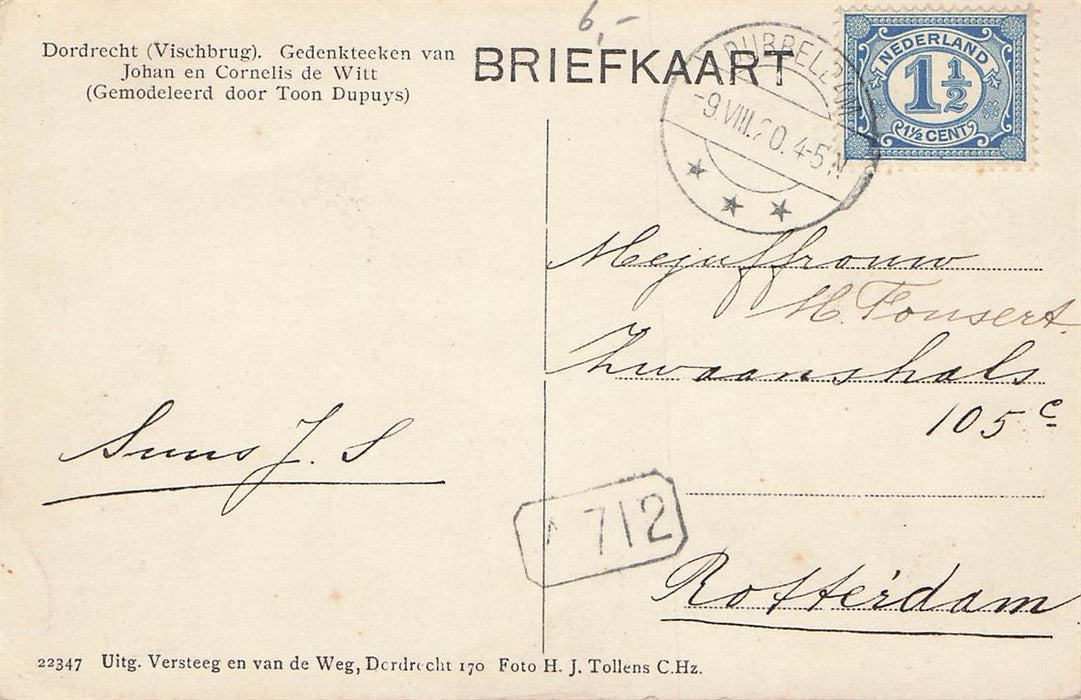 6,-
Dordrecht (Vischbrug). Gedenkteeken van
Johan en Cornelis de Witt
(Gemodeleerd door Toon Dupuys)
BRIEFKAART
DUBBELDAM
-9 VIII.20. 4-5 N
NEDERLAND
1 1/2
1½ CENT
Mejuffrouw
M. Fonsert.
Zwaanshals
105 c
Suus J. S
712
Rotterdam
22347 Uitg. Versteeg en van de Weg, Dordrecht 170 Foto H. J. Tollens C.Hz.